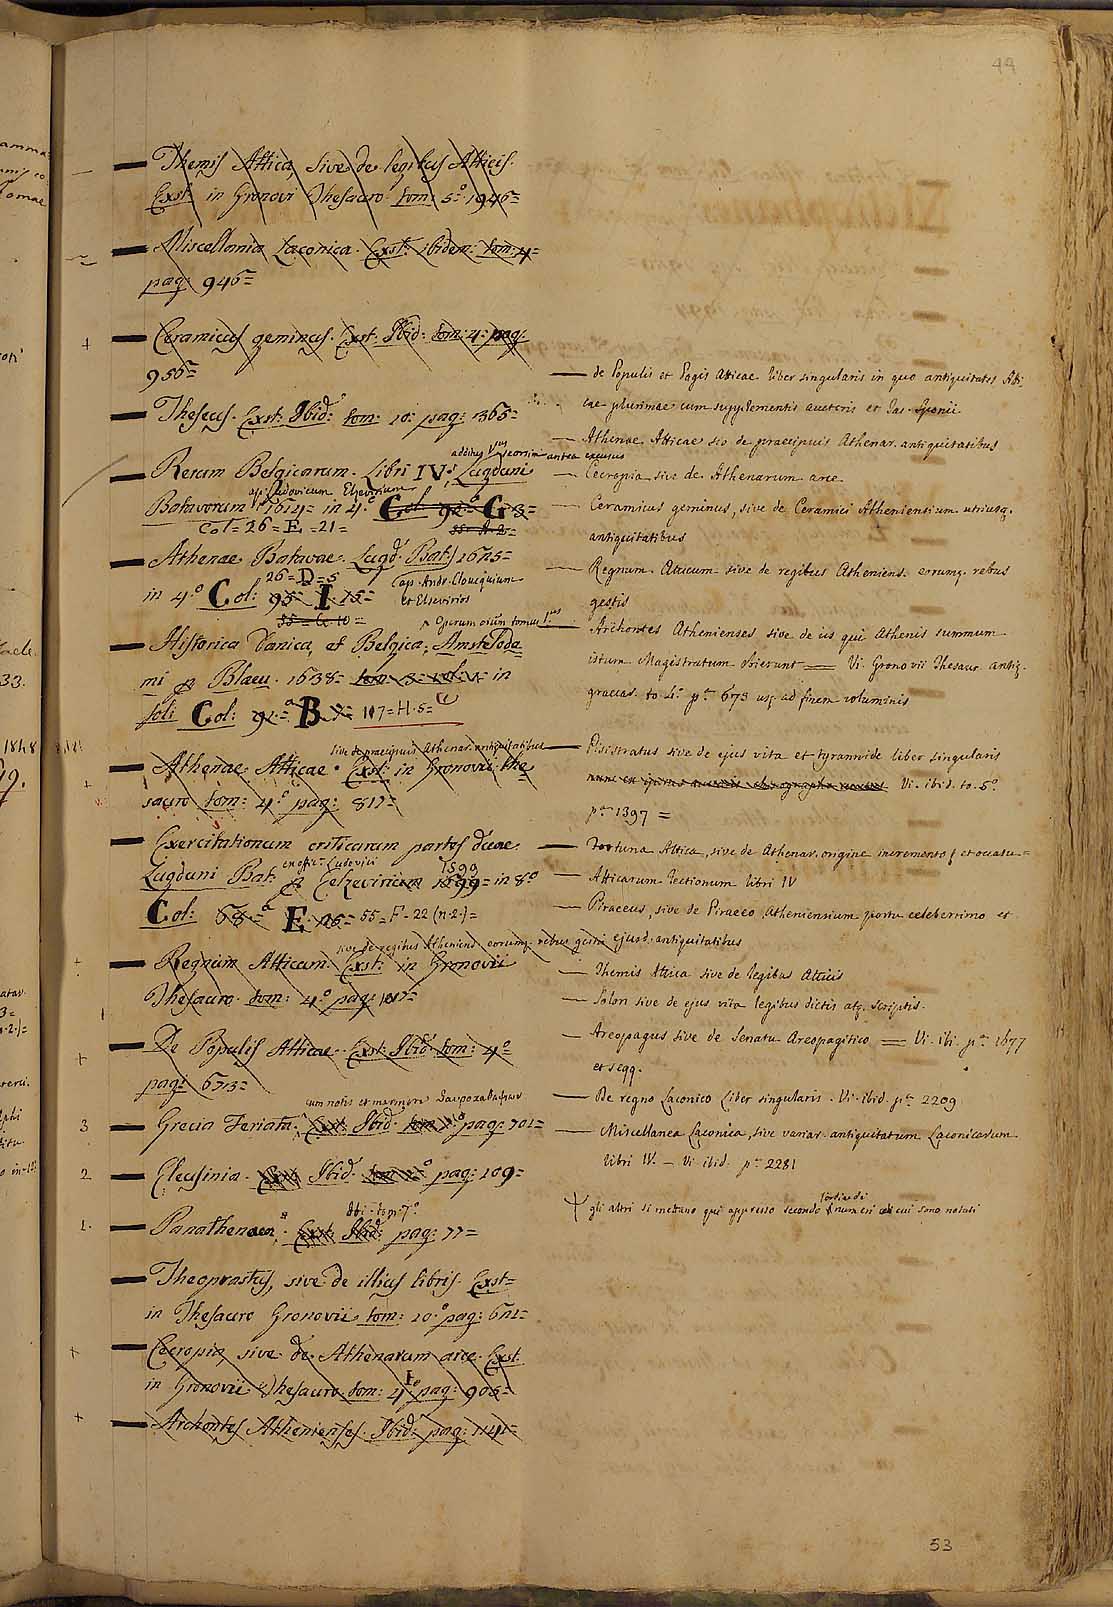 44
Themis Attica, sive de legibus Atticis.
Exst: in Gronovi Thesauro. tom: 5.º 1946=
Miscellania Laconica. Exst: ibidem: tom: 4=
pag: 946=
Ceramicus geminus. Exst: Ibid: tom: 4: pag:
956=
Theseus. Exst: Ibid: tom: 10: pag: 365=
additus seorsim antea excusus
Rerum Belgicarum. Libri IV. Lugduni
ap: Ludovicum Elsevirium
Batavorum 1614= in 4.º Col: G 3=
Col= 26= E. =21=
Athenae Batavae. Lugd. Bat. 1625=
26= D= 5 ap. Andr. Clouquium
in 4.º Col: 95= I. 15= et Elsevirios
55= G. 10=
Operum oiũn tomus 1.us
Historica Danica, et Belgica. Amsteloda
mi Blaeu. 1638= in
fol: Col: 91.= B 107= H. 5=
sive de praecipuis Athenar. antiquitatibus
Athenae Atticae. Exst: in Gronovii the
sauro tom: 4.º pag: 817=
Exercitationum criticarum partes duae.
ex offic. Ludovici 1599
Lugduni Bat. Elzevirium 1599= in 8.º
Col: 68.= E. 55= F- 22 (n. 2.)=
sive de regibus Atheniens. eorumq. rebus gestis ejusd. antiquitatibus
Regnum Atticum. Exst: in Gronovii
Thesauro. tom: 4.º pag:
De Populis Atticae. Exst: Ibid: tom: 4.º
pag: 673=
cum notis et marmore
3 Grecia Feriata. Exst: Ibid. pag: 701=
2 Eleusinia. Exst: Ibid. pag: 109=
ibi. tom. 7.º
1. Panathenaea. Exst: Ibid: pag: 77=
Theoprastus, sive de illius libris. Exst=
in Thesauro Gronovii tom: 10.º pag:
Cecropia, sive de Athenarum arce. Exst.
in Gronovii Thesauro. tom: 4.º pag: 906=
Archontes Athenienses. Ibid: pag: 1141=
de Populis et Pagis Atticae liber singularis in quo antiquitates Atti
cae plurimae cum supplementis auctoris et Jac. Sponii
Athenae Atticae sio de praecipuis Athenar. antiquitatibus
Cecropia sive de Athenarum arce
Ceramicus geminus, sive de Ceramici Atheniensium utriusq.
antiquitatibus
Regnum Atticum sive de regibus Atheniens. eorumq. rebus
gestis
Archontes Athenienses, sive de iis qui Athenis summum
istum Magistratum obierunt = Vi. Gronovii Thesaur. antiq.
graecas. to. 4.º p.na 673 usq. ad finem voluminis
Pisistratus sive de ejus vita et tyrannide liber singularis
Vi. ibid. to. 5.º
p.na 1397 =
Fortuna Attica, sive de Athenar. origine incremento et occasu=
Atticarum Lectionum libri IV
Piraeeus, sive de Piraeeo Atheniensium portu celeberrimo et
Themis Attica sive de legibus Atticis
Solon sive de ejus vita legibus dictis atq. scriptis.
Areopagus sive de Senatu Areopagitico = Vi. ibi. p.na 1677
et seqq.
De regno Laconico Liber singularis. Vi. ibid. p.na 2209
Miscellanea Laconica, sive variar. antiquitatum Laconicarum
libri IV. - Vi. ibid. p.na 2281
gli altri si mettano qui appresso secondo l'ordine dei numeri cui sono notati
53